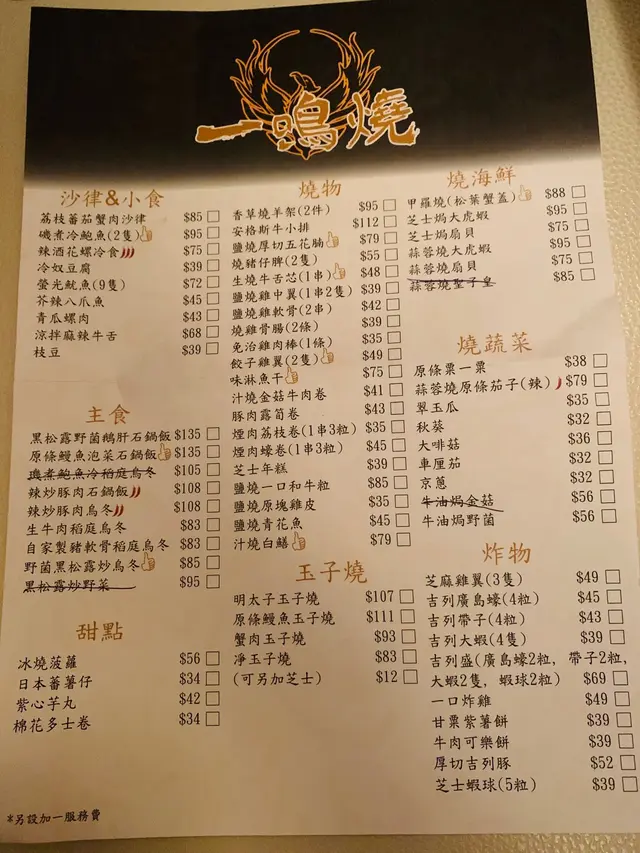 一鳴燒
沙律&小食
荔枝蕃茄蟹肉沙律 $85
磯煮冷鮑魚(2隻) $95
辣酒花螺冷食 $75
冷奴豆腐 $39
螢光魷魚(9隻) $72
芥辣八爪魚 $45
青瓜螺肉 $43
涼拌麻辣牛舌 $68
枝豆 $39
主食
黑松露野菌鵝肝石鍋飯 $135
原條鰻魚泡菜石鍋飯 $135
磯煮鮑魚冷稻庭烏冬 $105
辣炒豚肉石鍋飯 $108
辣炒豚肉烏冬 $108
生牛肉稻庭烏冬 $83
自家製豬軟骨稻庭烏冬 $83
野菌黑松露炒烏冬 $85
黑松露炒野菜 $95
甜點
冰燒菠蘿 $56
日本蕃薯仔 $34
紫心芋丸 $42
棉花多士卷 $34
*另設加一服務費
燒物
香草燒羊架(2件) $95
安格斯牛小排 $112
鹽燒厚切五花腩 $79
燒豬仔脾(2隻) $55
生燒牛舌芯(1串) $48
鹽燒雞中翼(1串2隻) $39
鹽燒雞軟骨(2串) $42
燒雞骨腸(2條) $39
免治雞肉棒(1條) $35
餃子雞翼(2隻) $49
味淋魚干 $75
汁燒金菇牛肉卷 $41
豚肉露筍卷 $43
煙肉荔枝卷(1串3粒) $35
煙肉蠔卷(1串3粒) $45
芝士年糕 $39
鹽燒一口和牛粒 $85
鹽燒原塊雞皮 $35
鹽燒青花魚 $45
汁燒白鱔 $79
玉子燒
明太子玉子燒 $107
原條鰻魚玉子燒 $111
蟹肉玉子燒 $93
凈玉子燒 $83
(可另加芝士) $12
燒海鮮
甲羅燒(松葉蟹蓋) $88
芝士焗大虎蝦 $95
芝士焗扇貝 $75
蒜蓉燒大虎蝦 $95
蒜蓉燒扇貝 $75
蒜蓉燒聖子皇 $85
燒蔬菜
原條粟一粟 $38
蒜蓉燒原條茄子(辣) $79
翠玉瓜 $35
秋葵 $32
大啡菇 $36
車厘茄 $32
京蔥 $32
牛油焗金菇 $56
牛油焗野菌 $56
炸物
芝麻雞翼(3隻) $49
吉列廣島蠔(4粒) $45
吉列帶子(4粒) $43
吉列大蝦(4隻) $39
吉列盛(廣島蠔2粒, 帶子2粒,
大蝦2隻, 蝦球2粒) $69
一口炸雞 $49
甘粟紫薯餅 $39
牛肉可樂餅 $39
厚切吉列豚 $52
芝士蝦球(5粒) $39